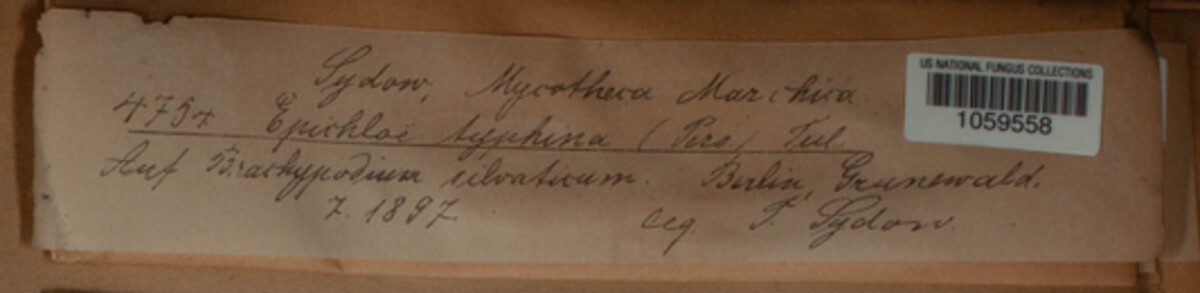 Sydow, Mycotheca Marchica
4754 Epichloë typhina (Pers) Tul.
Auf Brachypodium silvaticum. Berlin, Grunewald.
7. 1897. leg P. Sydow.
US NATIONAL FUNGUS COLLECTIONS
1059558